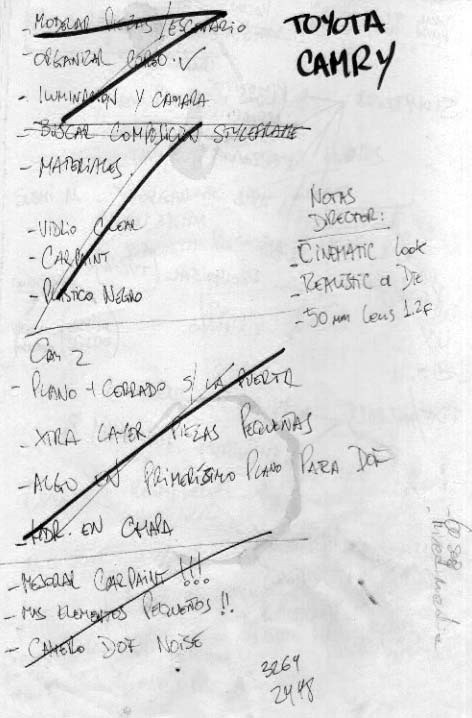 TOYOTA
CAMRY
- MODELAR PIEZAS / ESCENARIO
- ORGANIZAR ✓
- ILUMINACION Y CAMARA
- BUSCAR COMPOSICION STYLEFRAME
- MATERIALES.
- VIDRIO CLEAR
- CARPAINT
- PLASTICO NEGRO
NOTAS
DIRECTOR:
- CINEMATIC LOOK
- REALISTIC
- 50 mm LENS 1.2F
CAM 2
- PLANO + CERRADO S/ LA PUERTA
- XTRA LAYER PIEZAS PEQUEÑAS
- ALGO EN PRIMERISIMO PLANO PARA DOF
- HDR. EN CHAPA
- MEJORAR CARPAINT !!!
- MAS ELEMENTOS PEQUEÑOS !!
- CAMERO DOF NOISE
3264
2448